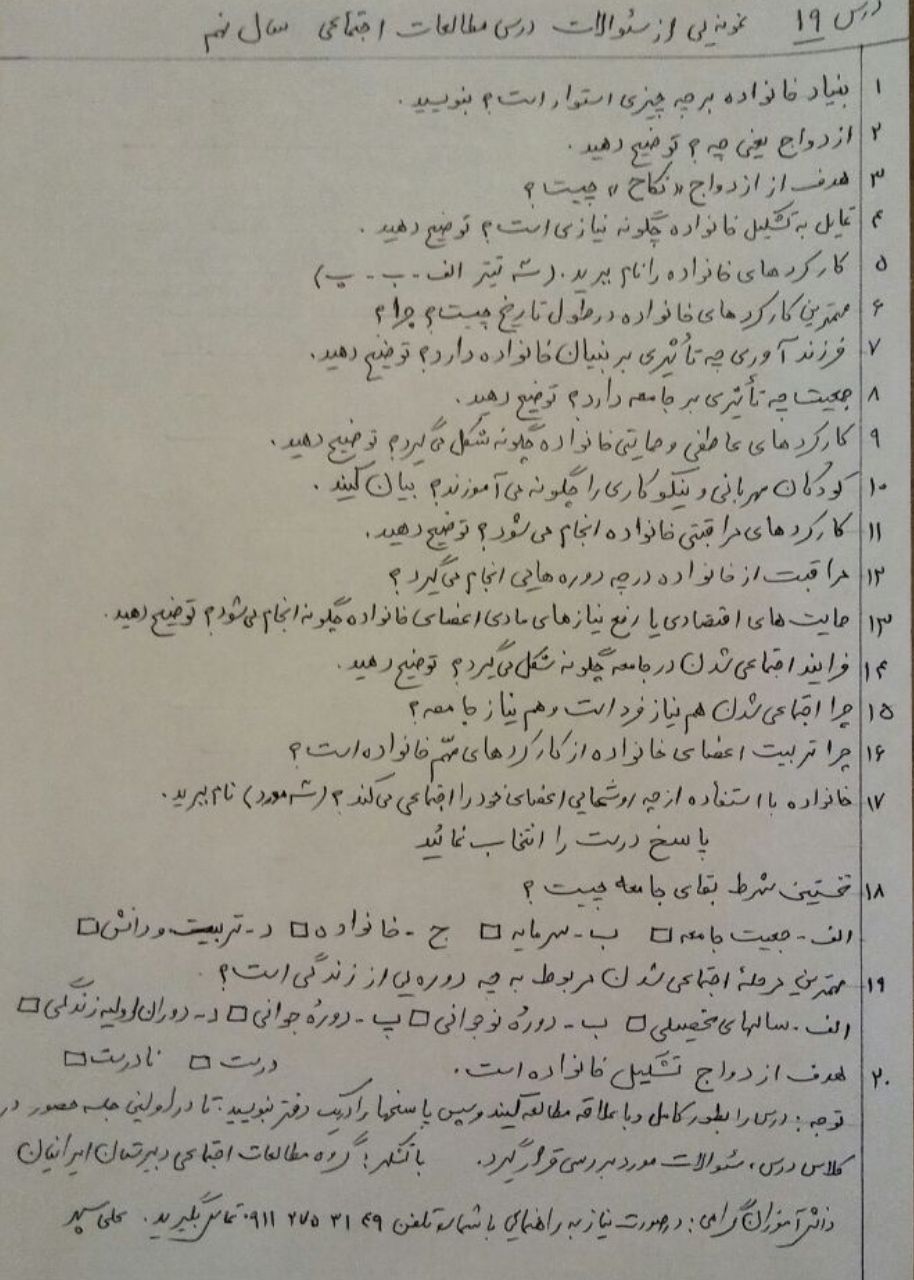 درس ۱۹ نمونه یی از سئوالات درس مطالعات اجتماعی سال نهم
۱ بنیاد خانواده بر چه چیزی استوار است؟ بنویسید.
۲ ازدواج یعنی چه؟ توضیح دهید.
۳ هدف از ازدواج «نکاح» چیست؟
۴ تمایل به تشکیل خانواده چگونه نیازی است؟ توضیح دهید.
۵ کارکردهای خانواده را نام ببرید. (سه تیتر الف - ب - پ)
۶ مهمترین کارکردهای خانواده در طول تاریخ چیست؟ چرا؟
۷ فرزند آوری چه تأثیری بر بنیان خانواده دارد؟ توضیح دهید.
۸ جمعیت چه تأثیری بر جامعه دارد؟ توضیح دهید.
۹ کارکردهای عاطفی و حمایتی خانواده چگونه شکل می گیرد؟ توضیح دهید.
۱۰ کودکان مهربانی و نیکوکاری را چگونه می آموزند؟ بیان کنید.
۱۱ کارکردهای مراقبتی خانواده انجام می شود؟ توضیح دهید.
۱۲ مراقبت از خانواده در چه دوره هایی انجام می گیرد؟
۱۳ حمایت های اقتصادی یا رفع نیازهای مادی اعضای خانواده چگونه انجام می شود؟ توضیح دهید.
۱۴ فرایند اجتماعی شدن در جامعه چگونه شکل می گیرد؟ توضیح دهید.
۱۵ چرا اجتماعی شدن هم نیاز فرد است و هم نیاز جامعه؟
۱۶ چرا تربیت اعضای خانواده از کارکردهای مهّم خانواده است؟
۱۷ خانواده با استفاده از چه روشهایی اعضای خود را اجتماعی می کند؟ (سه مورد) نام ببرید.
پاسخ درست را انتخاب نمائید
۱۸ نخستین شرط بقای جامعه چیست؟
الف - جمعیت جامعه □ ب - سرمایه □ ج - خانواده □ د - تربیت و دانش □
۱۹ مهمترین مرحلهٔ اجتماعی شدن مربوط به چه دوره یی از زندگی است؟
الف - سالهای تحصیلی □ ب - دورهٔ نوجوانی □ پ - دورهٔ جوانی □ د - دوران اولیه زندگی □
۲۰ هدف از دواج تشکیل خانواده است. درست □ نادرست □
توجه: درس را بطور کامل و با علاقه مطالعه کنید و سپس پاسخها را در یک دفتر بنویسید؛ تا در اولین جلسه حضور در
کلاس درس، سئوالات مورد بررسی قرار گیرد. با تشکر؛ گروه مطالعات اجتماعی دبیرستان ایرانیان
دانش آموزان گرامی: در صورت نیاز به راهنمایی با شماره تلفن ۴۹ ۳۱ ۲۷۵ ۰۹۱۱ تماس بگیرید. علی